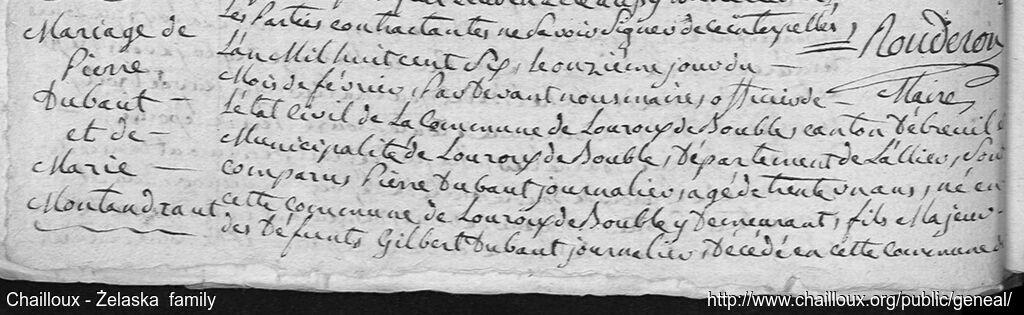 Les Parties contractantes ne savoir signer de ce interpelles,
Rouderon
Maire
Mariage de
Pierre
Dubaut —
et de —
Marie —
Montandraut
L'an Mil huit cent Six, le onzieme jour du —
Mois de février, Par Devant nous maire, officier de —
L'état Civil de La Commune de Louroux de Bouble, canton D'Ebreuil
Municipalité de Louroux de Bouble, Département de L'allier, Son
comparus Pierre Dubaut journalier, agé de trente un ans, né en
cette commune de Louroux de Bouble y Demeurant, fils Majeur
des Défunts Gilbert Dubaut journalier, Décédé en cette commune d
Chailloux - Żelaska family
http://www.chailloux.org/public/geneal/